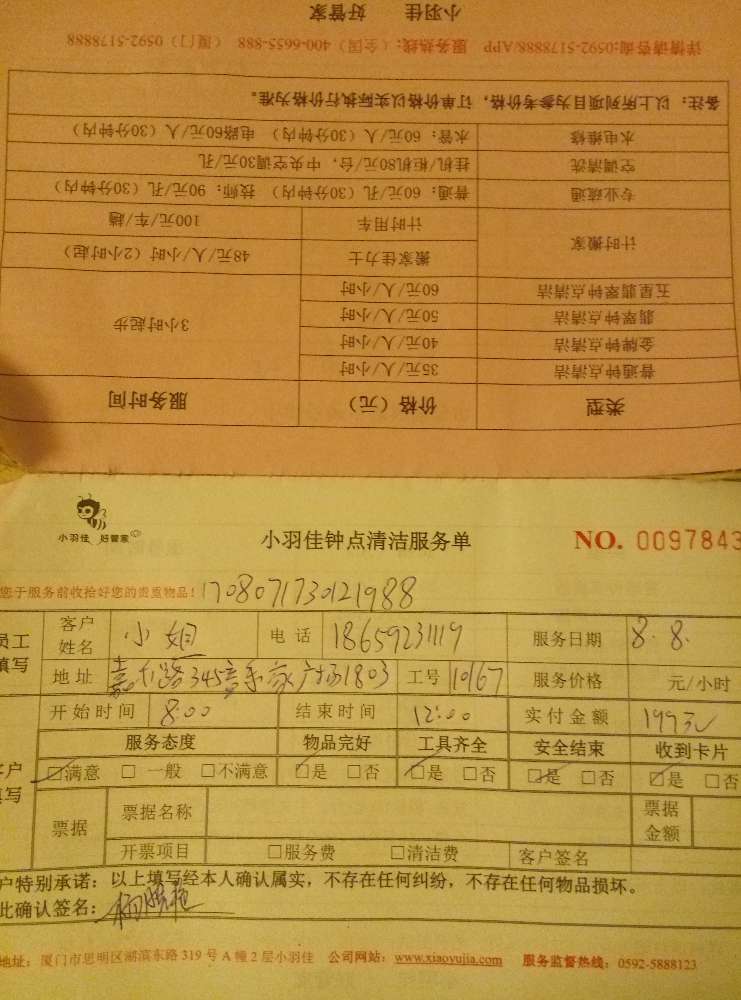 小羽佳 好管家
详情请咨询:0592-5178888/APP 服务热线:(全国)400-6655-888 (厦门)0592-5178888
备注:以上所列项目为参考价格,订单价格以实际执行价格为准。
水电维修 水管:60元/人(30分钟内) 电路60元/人(30分钟内)
空调清洗 挂机/柜机80元/台,中央空调30元/孔
专业疏通 普通:60元/孔(30分钟内) 技师:90元/孔(30分钟内)
计时搬家 计时用车 100元/车/趟
搬家佳力士 48元/人/小时(2小时起)
五星翡翠钟点清洁 60元/人/小时
翡翠钟点清洁 50元/人/小时 3小时起步
金牌钟点清洁 40元/人/小时
普通钟点清洁 35元/人/小时
类型 价格(元) 服务时间
小羽佳 好管家
小羽佳钟点清洁服务单 NO. 0097843
您于服务前收拾好您的贵重物品! 1708071730121988
员工填写 客户姓名 小姐 电话 18659231119 服务日期 8.8.
地址 嘉禾路345 广场1803 工号 10167 服务价格 元/小时
开始时间 8:00 结束时间 12:00 实付金额 199元
服务态度 物品完好 工具齐全 安全结束 收到卡片
客户填写 □满意 □一般 □不满意 □是 □否 □是 □否 □是 □否 □是 □否
票据 票据名称 票据金额
开票项目 □服务费 □清洁费 客户签名
户特别承诺:以上填写经本人确认属实,不存在任何纠纷,不存在任何物品损坏。
此确认签名:
地址:厦门市思明区湖滨东路319号A幢2层小羽佳 公司网站:www.xiaoyujia.com 服务监督热线:0592-5888123